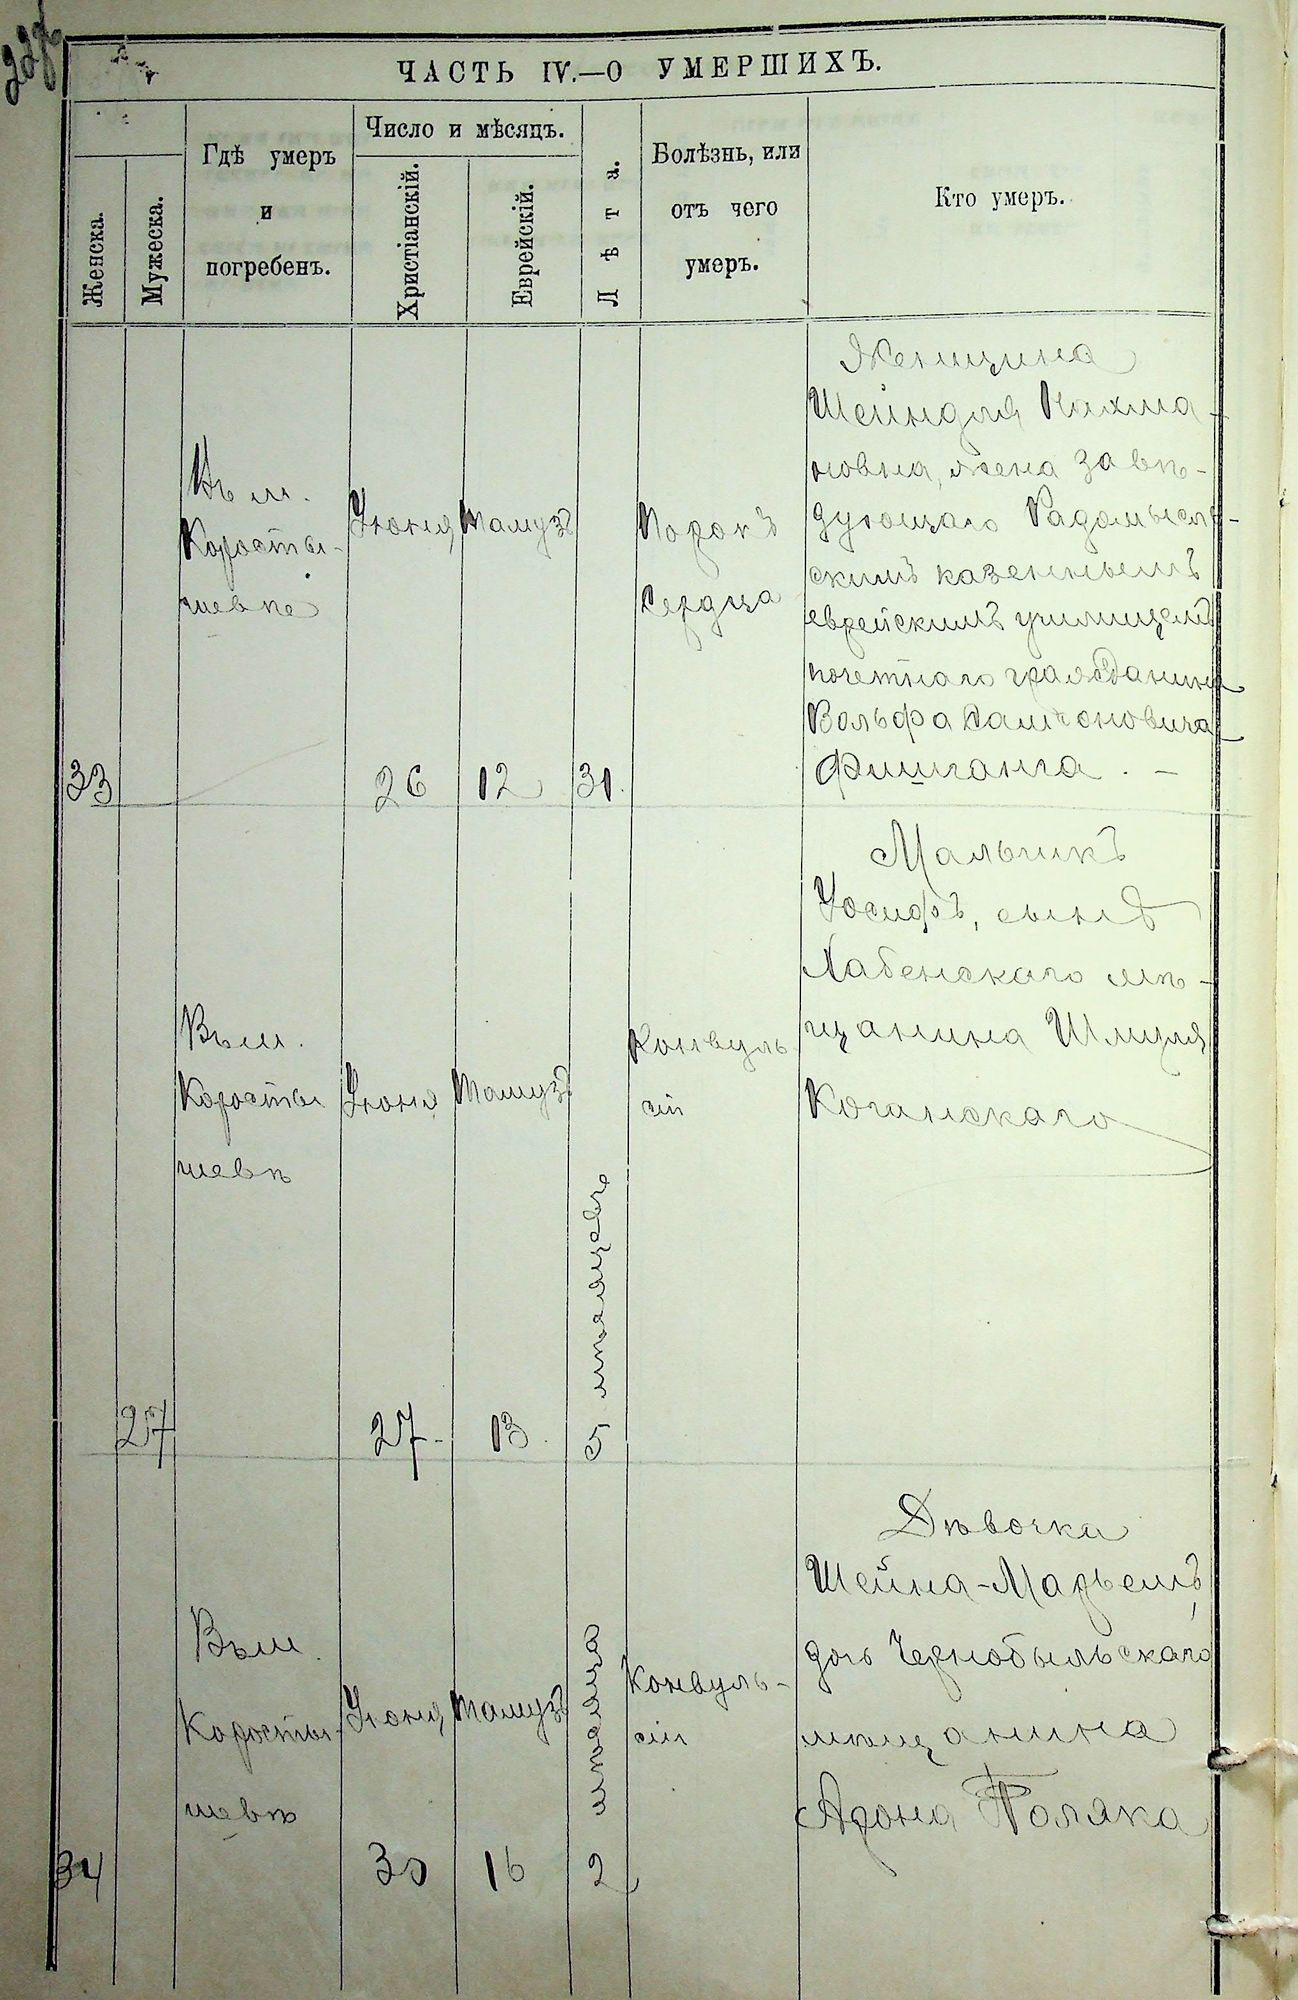 ЧАСТЬ IV.—О УМЕРШИХЪ.
Женска.
Мужеска.
Гдѣ умеръ
и
погребенъ.
Число и мѣсяцъ.
Христіанскій.
Еврейскій.
Лѣта.
Болѣзнь, или
отъ чего
умеръ.
Кто умеръ.
33
Въ м.
Коросты-
шевѣ
Іюня
26
Тамузъ
12
31.
Порокъ
сердца
Женщина
Шейндля Нахма-
новна, жена завѣ-
дующаго Радомысль-
скимъ казеннымъ
еврейскимъ училищемъ
почетнаго гражданина
Вольфа Самсоновича
Фишганга. —
27
Въ м.
Коросты
шевѣ
Іюня
27
Тамузъ
13
5 мѣсяцевъ
Конвуль
сіи
Мальчикъ
Іосифъ, сынъ
Хабенскаго мѣ-
щанина Шмуля
Коганскаго
34
Въ м.
Коросты-
шевѣ
Іюня
30
Тамузъ
16
2 мѣсяца
Конвуль-
сіи
Дѣвочка
Шейна-Марьемъ,
дочь Чернобыльскаго
мѣщанина
Арона Поляка